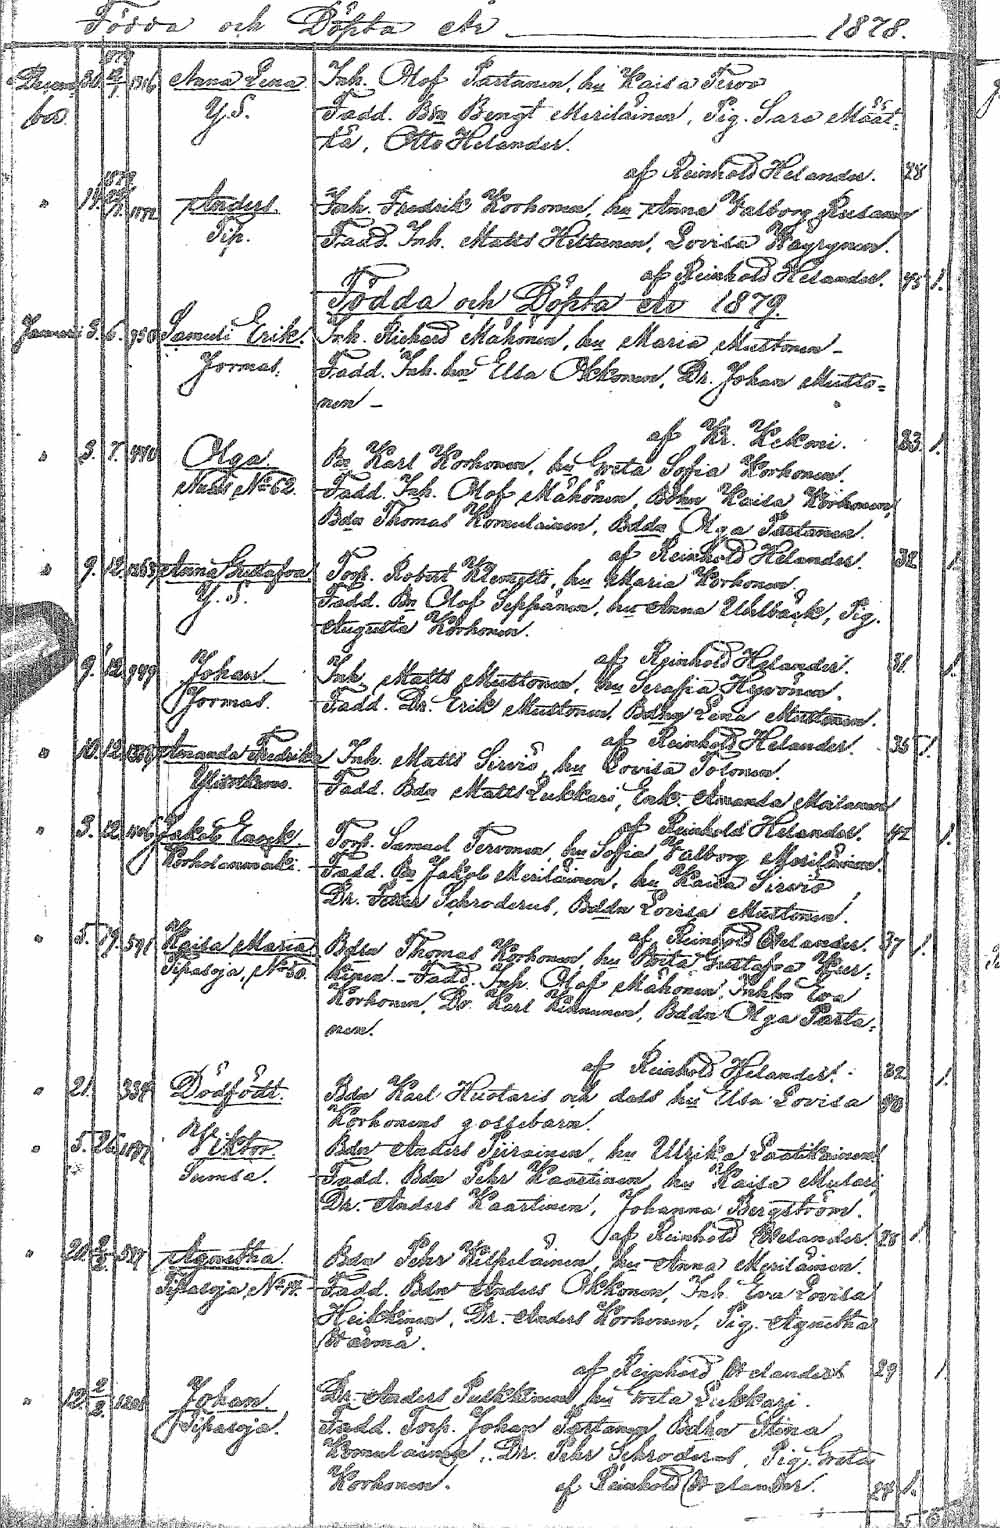 Födda och Döpta År 1878.
Decem- 30. 1879 1316 Anna Lena Inh. Olof Partanen, hu Kaisa Tervo
ber. Y. S. Fadd. Bdn Bengt Meriläinen, Pig. Sara Määt-
tä, Otto Helander.
af Reinhold Helander. 28
" 1879 1172 Anders Inh. Fredrik Korhonen, hu Anna Valborg Rusanen
Tip. Fadd. Inh. Matts Hiltunen, Lovisa Wäyrynen.
af Reinhold Helander. 45 1.
Födda och Döpta År 1879.
Januari 3. 6. 950 Samuli Erik. Inh. Richard Mähönen, hu Maria Mustonen –
Jormas. Fadd. Inh. hu Elsa Okkonen, Dr. Johan Musto-
nen –
af Kr. Kekoni. 23 1.
" 3. 7. 440 Olga Bn Karl Korhonen, hu Greta Sofia Korhonen.
Nuas No 62. Fadd. Inh. Olof Mähönen, Bdhn Kaisa Korhonen,
Bdn Thomas Komulainen, Bddn Olga Partanen.
af Reinhold Helander. 32 1.
" 9. 12. 1263 Anna Gustafva Torp. Robert Klemetti, hu Maria Korhonen.
Y. S. Fadd. Bn Olof Seppänen, hu Anna Uhlbäck, Pig.
Augusta Korhonen.
af Reinhold Helander. 31 1.
9. 12. 949 Johan Inh. Matts Mustonen, hu Serafia Hyvönen.
Jormas. Fadd. Dr. Erik Mustonen, Bdhn Lena Mustonen.
af Reinhold Helander. 35 1.
" 10. 12. Amanda Fredrika Inh. Matts Sirviö, hu Lovisa Tolonen.
Fadd. Bdn Matts Lukkari, Enk. Amanda Moilanen
af Reinhold Helander. 42 1.
" 3. 12. Jakob Enock Torp. Samuel Tervonen, hu Sofia Valborg Meriläinen.
Korholanmäki. Fadd. Bn Jakob Meriläinen, hu Kaisa Sirviö,
Dr. Petter Schroderus, Bddn Lovisa Mustonen.
af Reinhold Helander. 37 1.
" 5. 19. 591 Kaisa Maria Bdsn Thomas Korhonen, hu Greta Gustafva Kär-
Tipasoja, No 50. kinen. – Fadd. Inh. Olof Mähönen, Inhhu Eva
Korhonen, Dr. Karl Kinnunen, Bddn Olga Parta-
nen.
af Reinhold Helander. 32 1.
" 21. 334 Dödfödt. Bdn Karl Huotaris och dess hu Elsa Lovisa 40
Korhonens gossebarn.
" 5. 26. 1187 Viktor Bdn Anders Piirainen, hu Ulrika Laatikainen,
Sumsa. Fadd. Bdn Pehr Kaartinen, hu Kaisa Mulari,
Dr. Anders Kaartinen, Johanna Bergström.
af Reinhold Helander. 28 1.
" 20. 2/2. 587 Agnetha. Bdn Pehr Kilpeläinen, hu Anna Meriläinen.
Tipasoja, No 17. Fadd. Bdn Anders Okkonen, Inh. Eva Lovisa
Heikkinen, Dr. Anders Korhonen, Pig. Agnetha
Härmä.
af Reinhold Helander. 29 1.
" 12. 2/2. Johan Dr. Anders Pulkkinen, hu Greta Lukkari.
Tipasoja. Fadd. Torp. Johan Partanen, Bdhn Stina
Komulainen, Dr. Pehr Schroderus, Pig. Greta
Korhonen. af Reinhold Helander. 24 1.